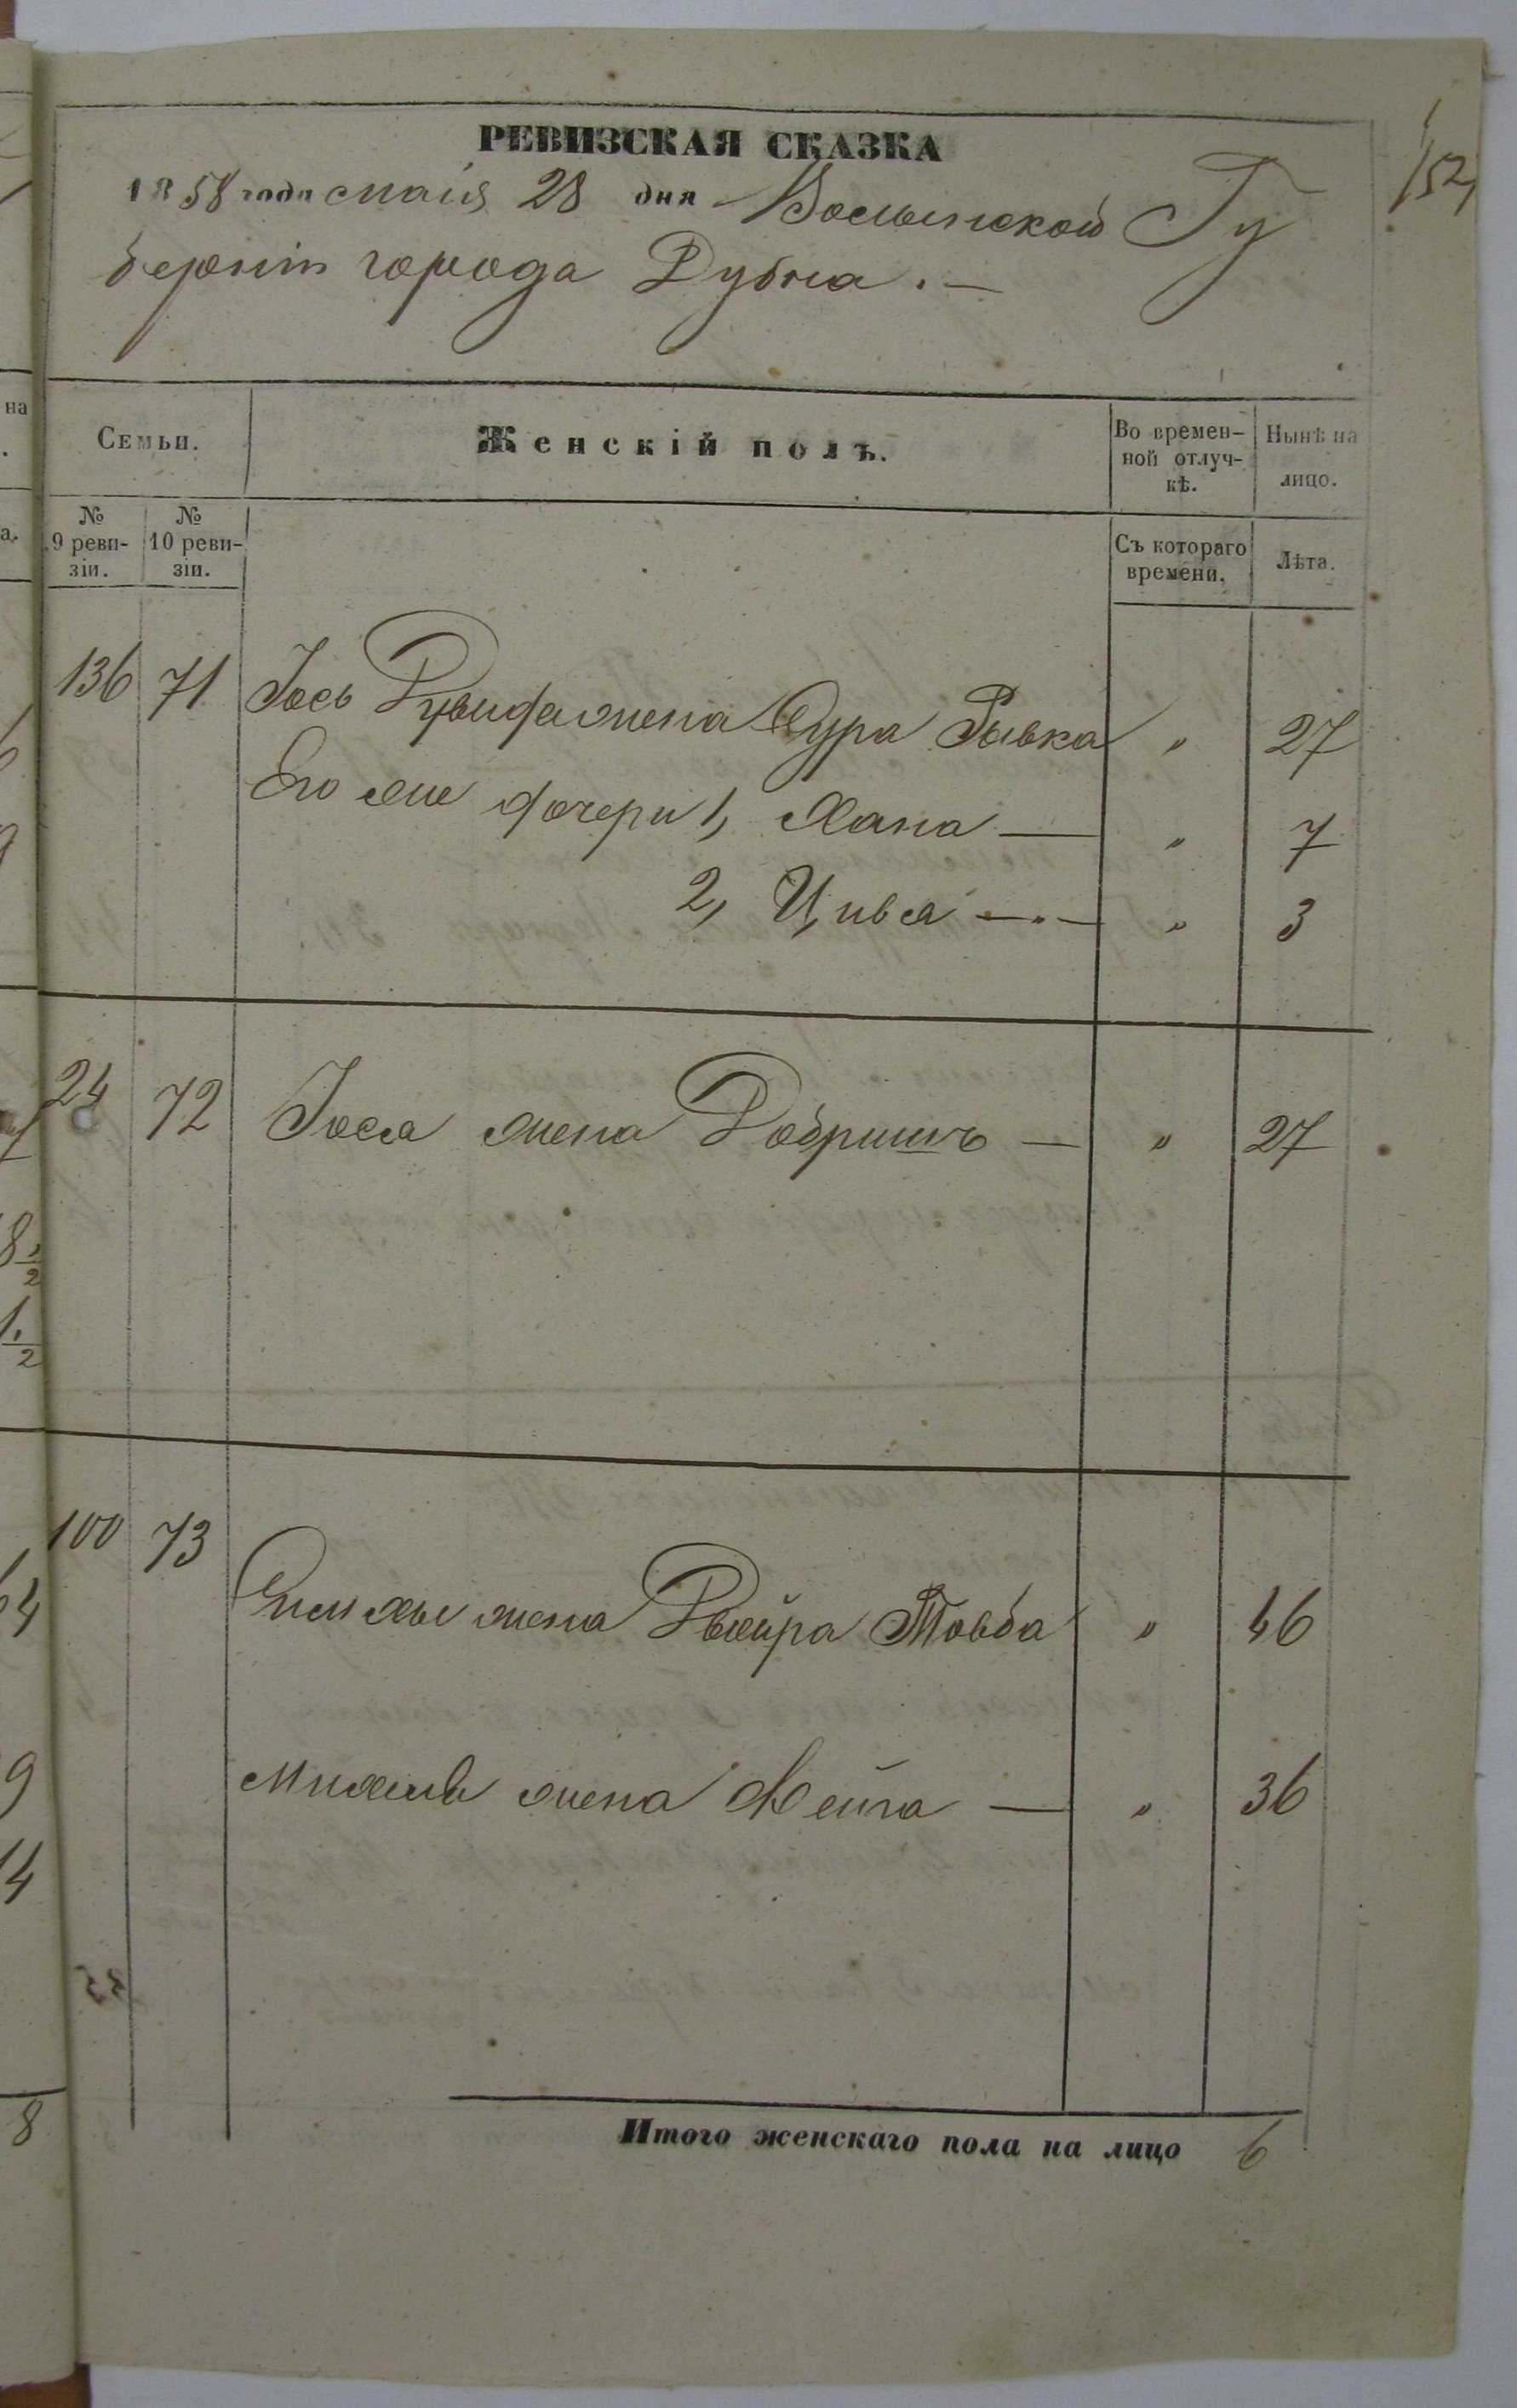 152,
РЕВИЗСКАЯ СКАЗКА
1858 года маія 28 дня Волынской Гу
берніи города Дубна. —
Семьи.
Женскій полъ.
Во времен-
ной отлуч-
кѣ.
Нынѣ на
лицо.
№
9 реви-
зіи.
№
10 реви-
зіи.
Съ котораго
времени.
Лѣта.
136 71 Іось жена Сура Рывка " 27
Его же дочери 1, Хана — " 7
2, Цивья — " 3
24 72 Іоса жена Добришъ — " 27
100 73
жена Двейра Товба " 46
жена Хейга — " 36
Итого женскаго пола на лицо 6